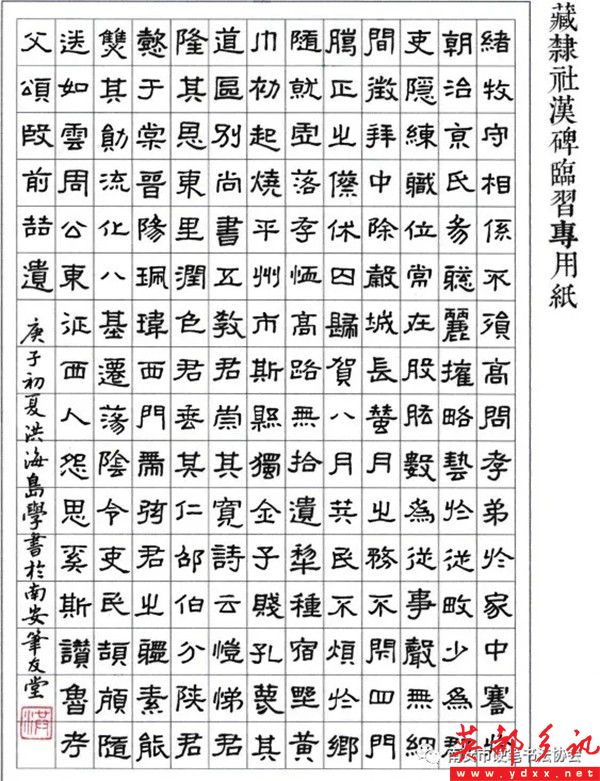 藏隸社漢碑臨習專用紙
緒牧守相係不殞高問孝弟於家中謇於
朝治京氏易聰麗權略藝於從畋少為郡
吏隱練職位常在股肱數為從事聲無細
間徵拜中除穀城長蠶月之務不閉四門
臘正之祭休囚歸賀八月筭民不煩於鄉
隨就虛落存恤高路無拾遺犂種宿野黃
巾初起燒平州市斯縣獨全子賤孔蔑其
道區別尚書五教君崇其寬詩云愷悌君
隆其恩東里潤色君垂其仁邵伯分陝君
懿于棠晉陽珮瑋西門帶弦君之體素能
雙其勛流化八基遷蕩陰令吏民頡頏隨
送如雲周公東征西人怨思奚斯讚魯考
父頌殷前喆遺
庚子初夏洪海島學書於南安筆友堂
洪
南安市硬笔书法协会
英都乡讯
www.ydxx.net